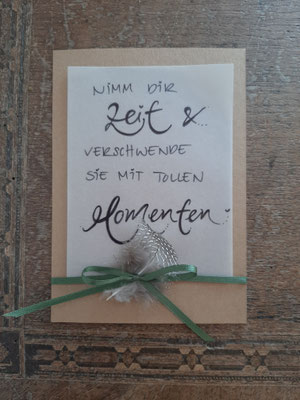 NIMM DIR
Zeit &
VERSCHWENDE
SIE MIT TOLLEN
Momenten